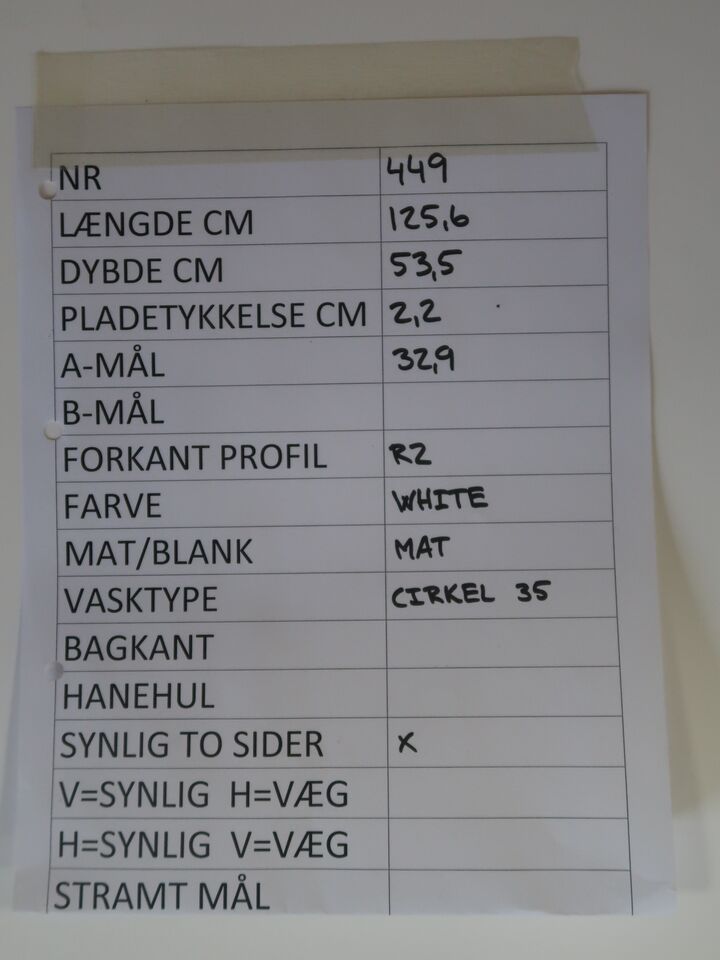 NR 449
LÆNGDE CM 125,6
DYBDE CM 53,5
PLADETYKKELSE CM 2,2
A-MÅL 32,9
B-MÅL
FORKANT PROFIL R2
FARVE WHITE
MAT/BLANK MAT
VASKTYPE CIRKEL 35
BAGKANT
HANEHUL
SYNLIG TO SIDER X
V=SYNLIG H=VÆG
H=SYNLIG V=VÆG
STRAMT MÅL